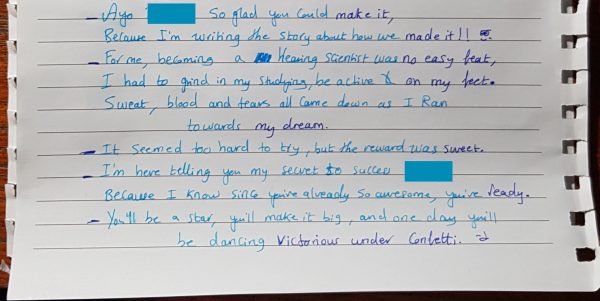 - Ayo So glad you could make it,
Because I'm writing the story about how we made it!!
- For me, becoming a Hearing Scientist was no easy feat,
I had to grind in my studying, be active & on my feet.
Sweat, blood and tears all came down as I Ran
towards my dream.
- It seemed too hard to try, but the reward was sweet.
- I'm here telling you my secret to success
Because I know since you've already so awesome, you've ready.
- You'll be a star, you'll make it big, and one day you'll
be dancing Victorious under Confetti.